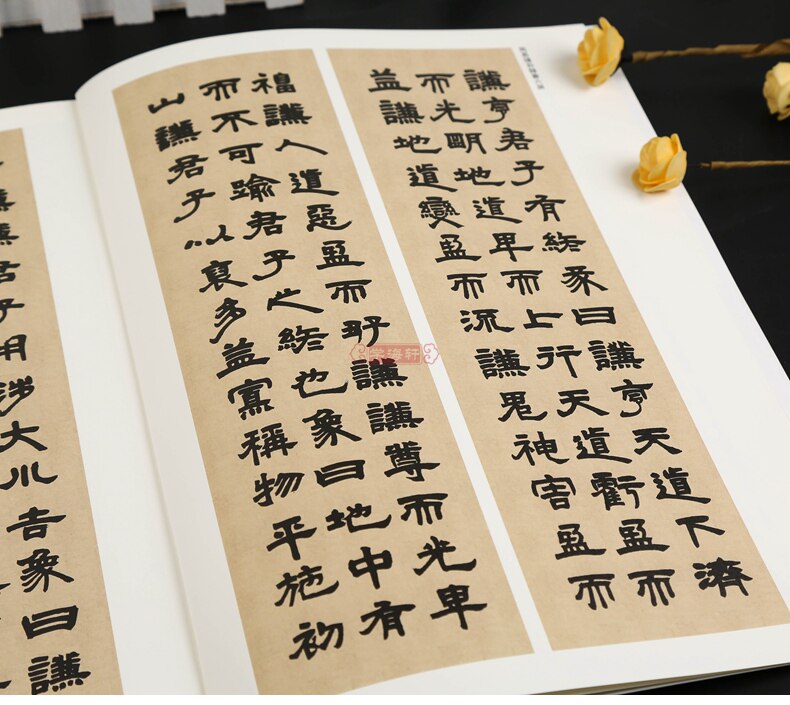 謙亨君子有終彖曰謙亨天道下濟
而光明地道卑而上行天道虧盈而
益謙地道變盈而流謙鬼神害盈而
福謙人道惡盈而好謙謙尊而光卑
而不可踰君子之終也象曰地中有
山謙君子以裒多益寡稱物平施初
謙謙君子用涉大川吉象曰謙
学海轩